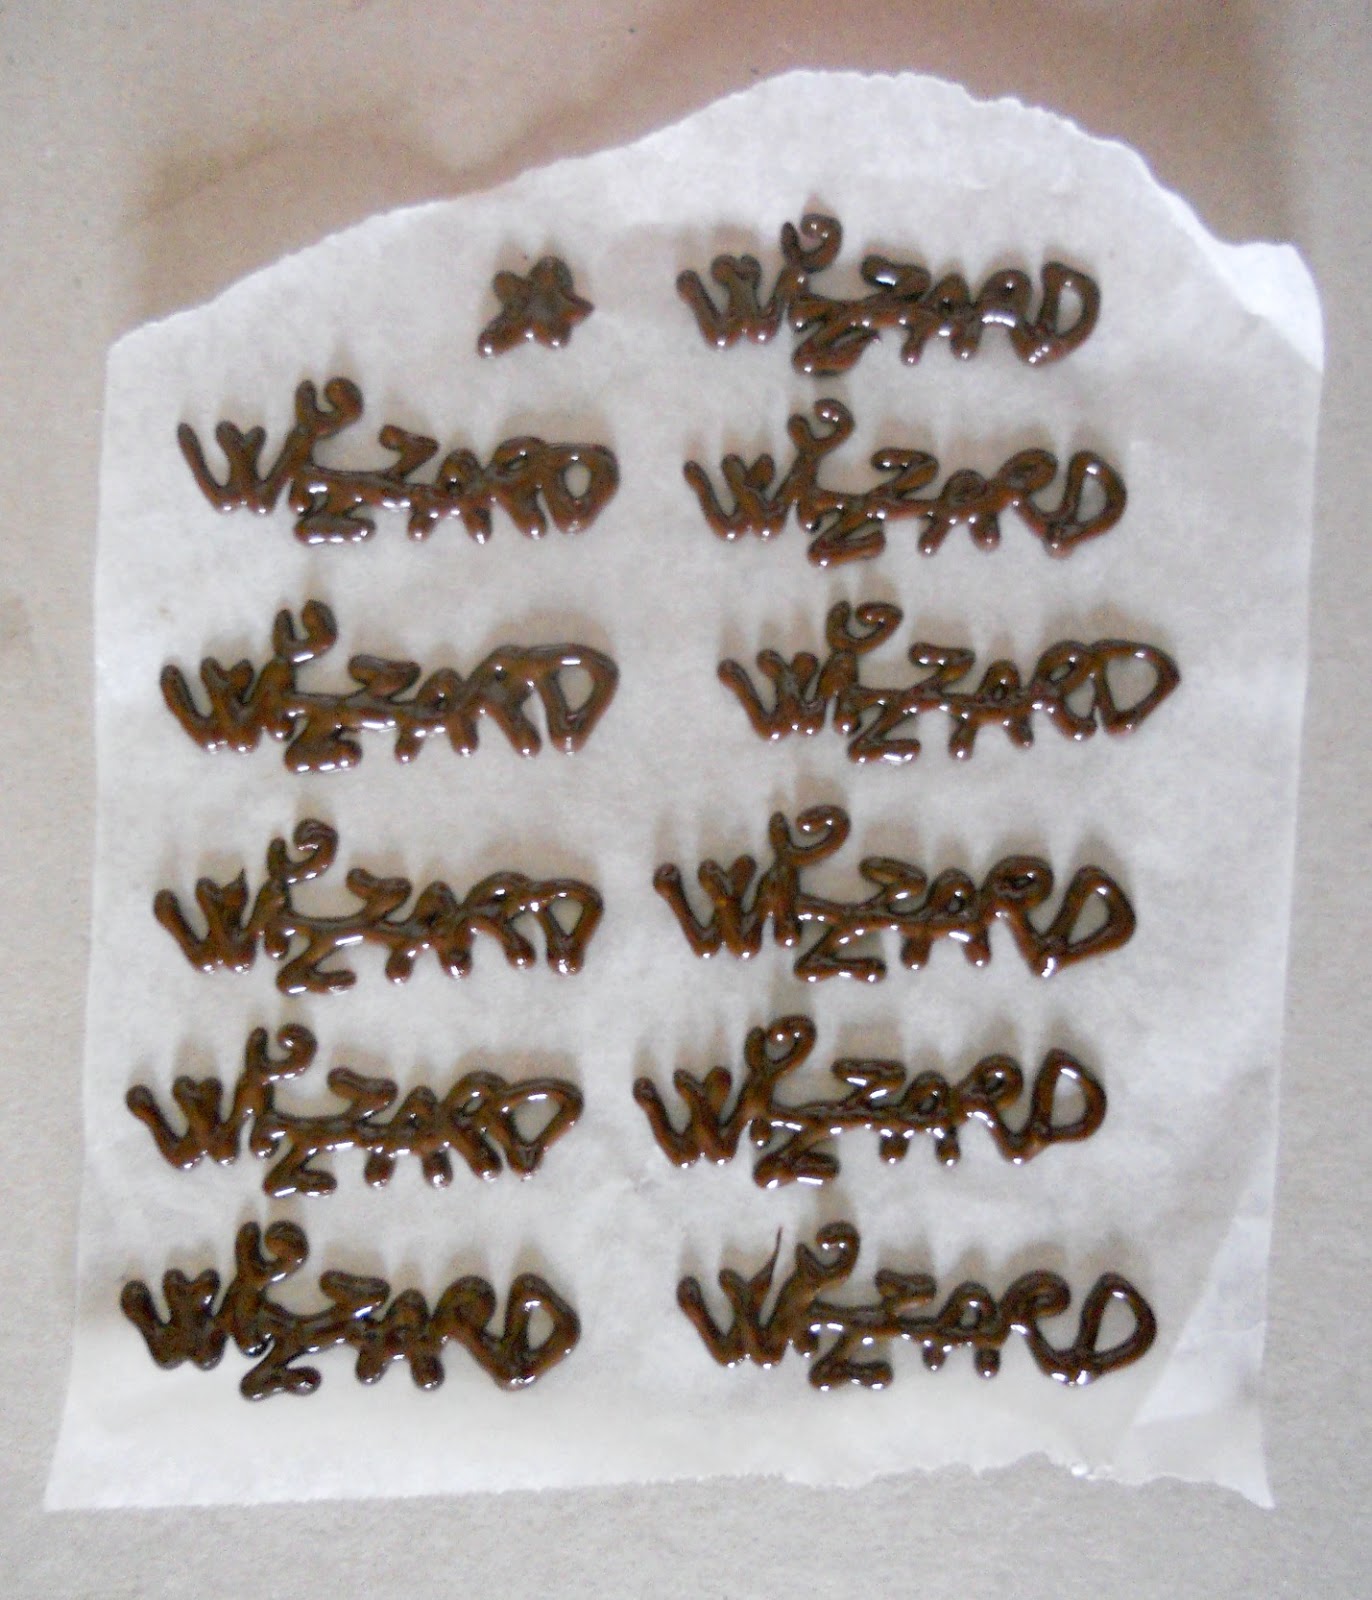 WIZZARD
WIZZARD WIZZARD
WIZZARD WIZZARD
WIZZARD WIZZARD
WIZZARD WIZZARD
WIZZARD WIZZARD